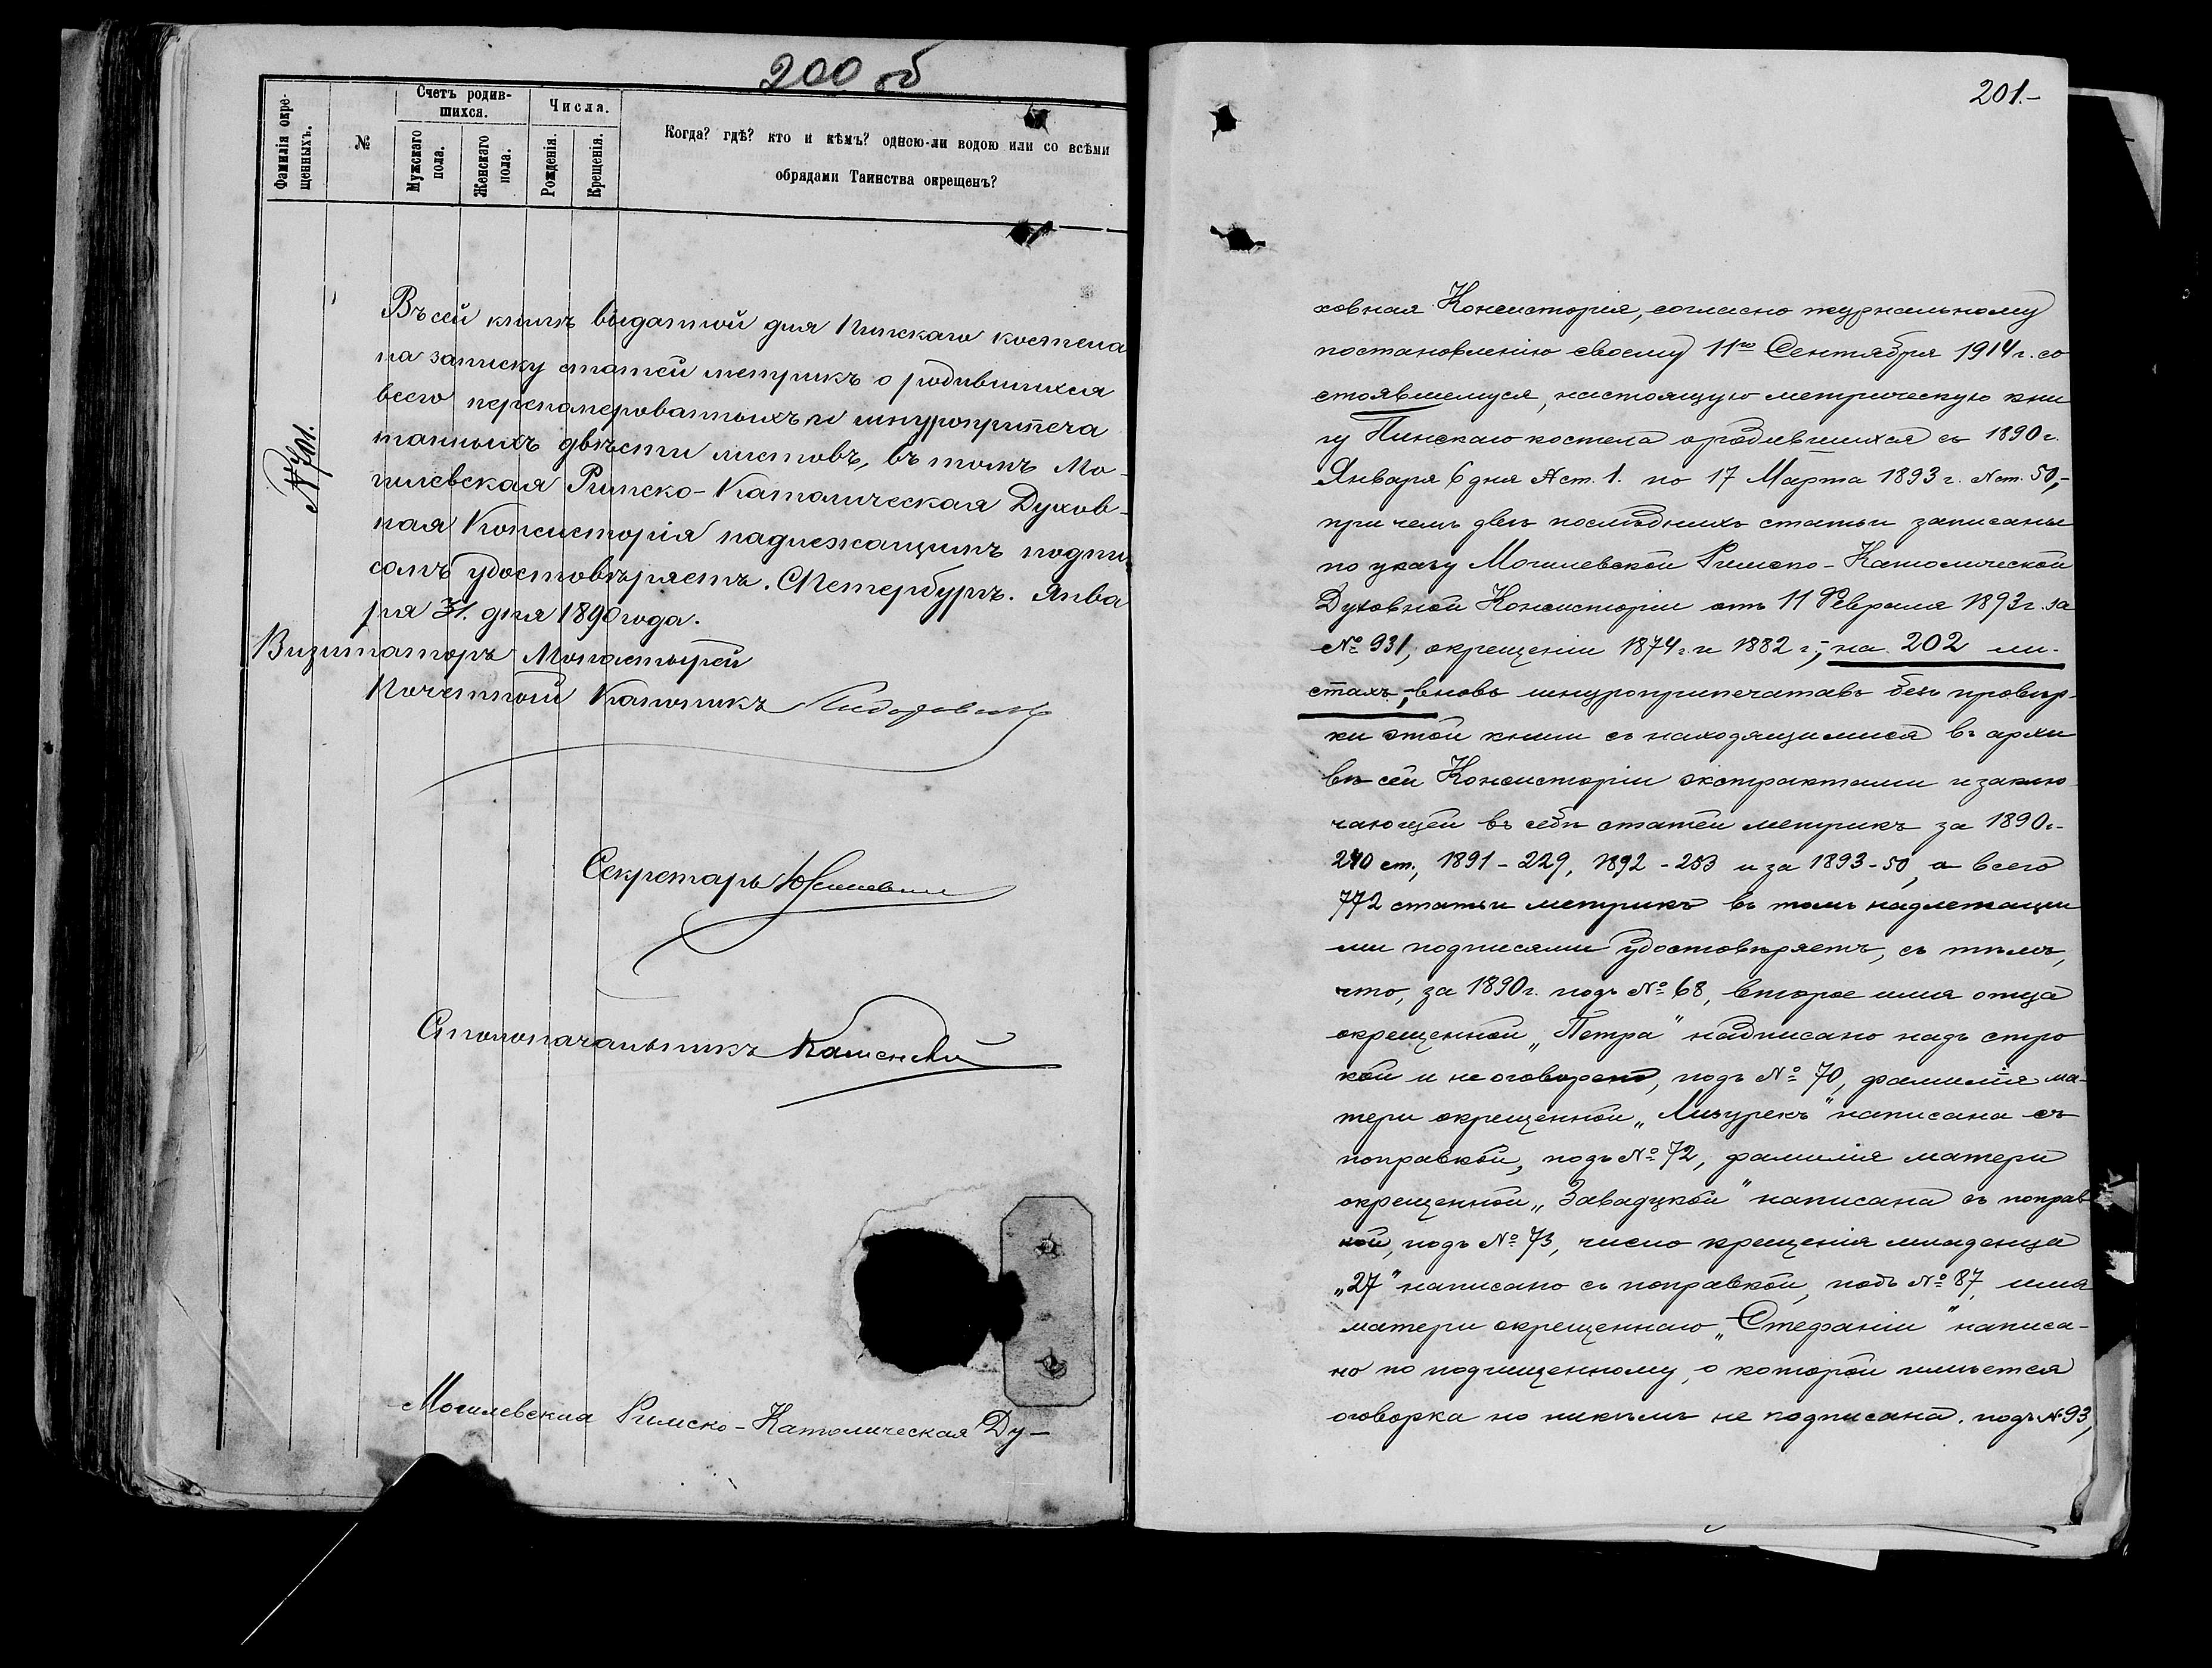 200 об
Фамилія окре-
щенныхъ.
№
Счетъ родив-
шихся.
Мужскаго
пола.
Женскаго
пола.
Числа.
Рожденія.
Крещенія.
Когда? гдѣ? кто и кѣмъ? одною-ли водою или со всѣми
обрядами Таинства окрещенъ?
№ 701.
Въ сей книгѣ выданной для Пинскаго костела
на записку статей метрикъ о родившихся
всего перенамерованныхъ и шнуроприпеча
танныхъ двѣсти листовъ, въ томъ Мо-
гилевская Римско-Католическая Духов-
ная Консисторія надлежащимъ подпи
сомъ удостовѣряетъ. СПетербургъ. Янва
ря 31. дня 1890 года.
Визитаторъ Монастырей
Почетный Каноникъ
Секретарь
Столоначальникъ Каменскій
Могилевская Римско-Католическая Ду-
201.-
ховная Консисторія, согласно журнальному
постановленію своему 11го Сентября 1914 г. со
стоявшемуся, настоящую метрическую кни
гу Пинскаго костела о родившихся съ 1890 г.
Января 6 дня № ст. 1. по 17 Марта 1893 г. № ст. 50,-
при чемъ двѣ послѣднихъ статьи записаны
по указу Могилевской Римско-Католической
Духовной Консисторіи отъ 11 Февраля 1893 г. за
№ 931, окрещеніи 1874 г. и 1882 г.,- на 202 ли-
стахъ,- вновь шнуроприпечатавъ безъ провѣр-
ки этой книги съ находящимися въ архи
вѣ сей Консисторіи экстрактами и заклю-
чающей въ себѣ статей метрикъ за 1890 г.-
240 ст., 1891 - 229, 1892 - 253 и за 1893 - 50, а всего
772 статьи метрикъ въ томъ надлежащи
ми подписями удостовѣряетъ, съ тѣмъ,
что, за 1890 г. подъ № 68, второе имя отца
окрещенной „Петра" надписано надъ стро
кой и не оговорено, подъ № 70, фамилія ма-
тери окрещенной „Мизурекъ" написана съ
поправкой, подъ № 72, фамилія матери
окрещенной „Завадзкой" написана съ поправ
кой, подъ № 73, число крещенія младенца
„27" написано съ поправкой, подъ № 87, имя
матери окрещеннаго „Стефаніи" написа-
но по подчищенному, о которой имѣется
оговорка но никѣмъ не подписана. подъ № 93,